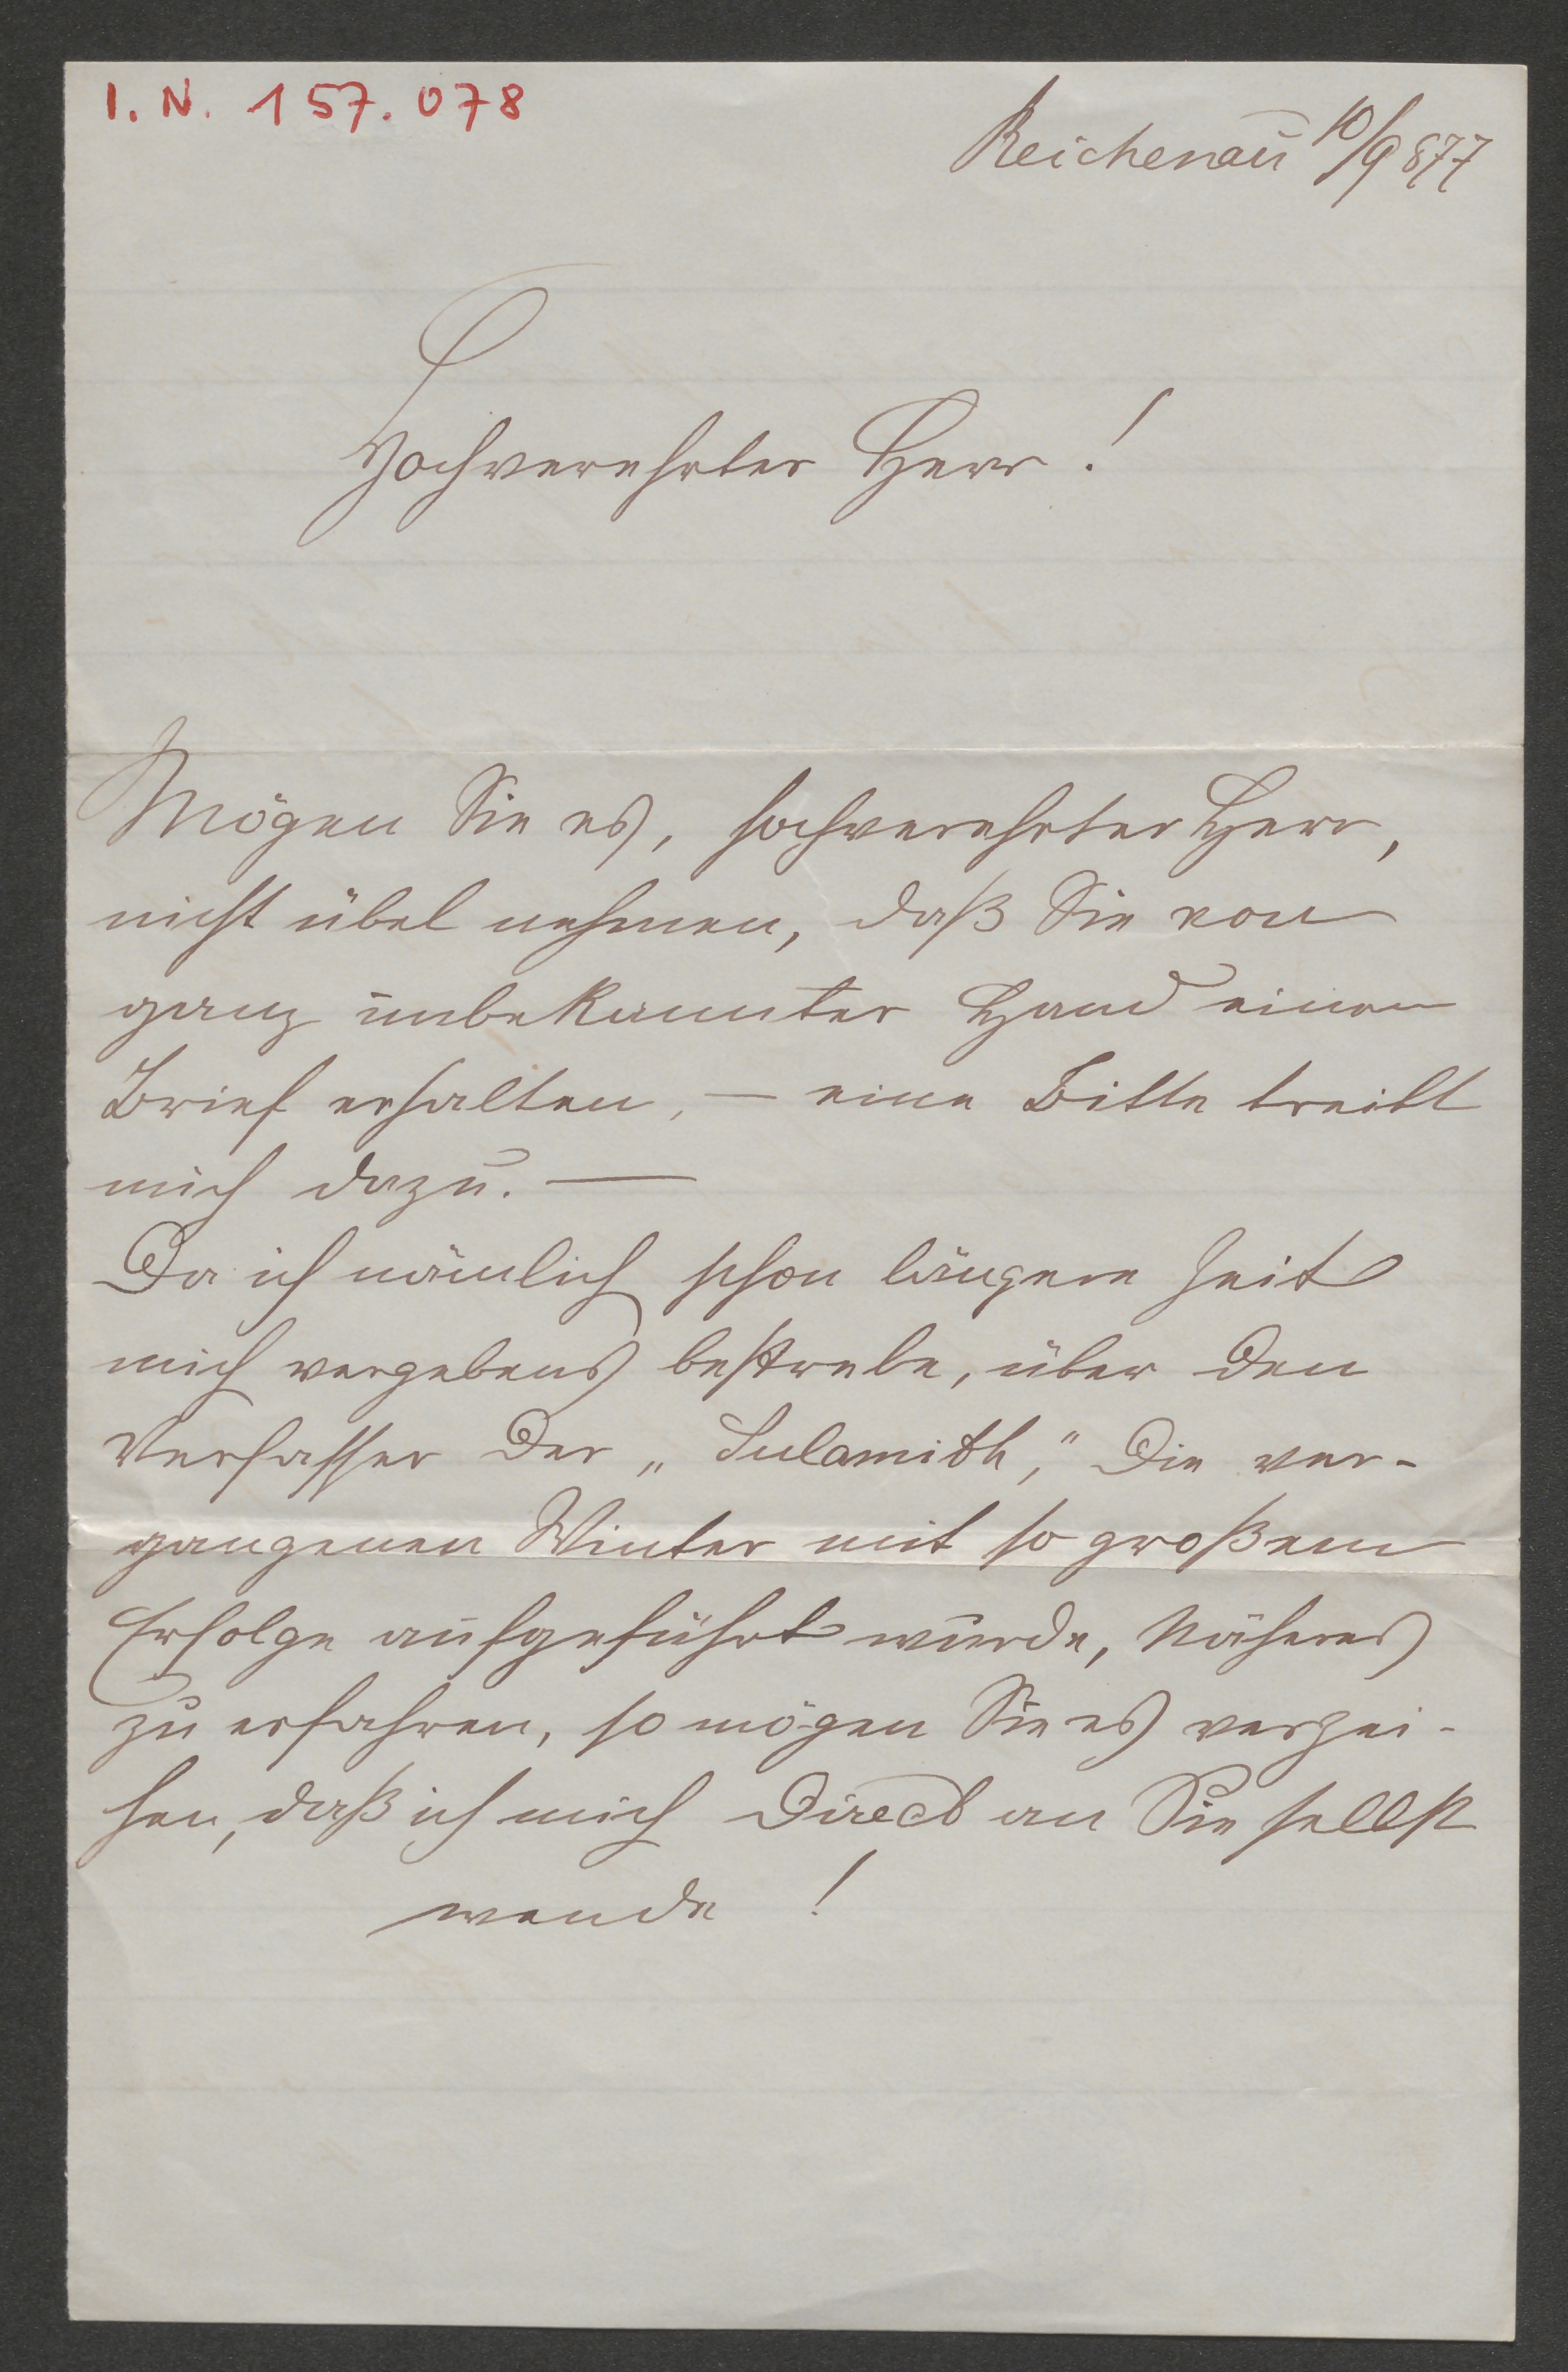 I. N. 157.078
Reichenau 10/9 877
Hochverehrter Herr!
Mögen Sie es, hochverehrter Herr,
nicht übel nehmen, daß Sie von
ganz unbekannter Hand einen
Brief erhalten, — eine Bitte treibt
mich dazu. —
Da ich nämlich schon längere Zeit
mich vergebens bestrebe, über den
Verfasser der „Sulamith," die ver-
gangenen Winter mit so großem
Erfolge aufgeführt wurde, Näheres
zu erfahren, so mögen Sie es verzei-
hen, daß ich mich direct an Sie selbst
wende !